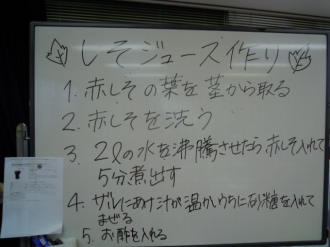 しそジュース作り
1. 赤しその葉を茎から取る
2. 赤しそを洗う
3. 2ℓの水を沸騰させたら赤しそ入れて
5分煮出す
4. ザルにあけ汁が温かいうちに砂糖を入れて
まぜる
5. お酢を入れる